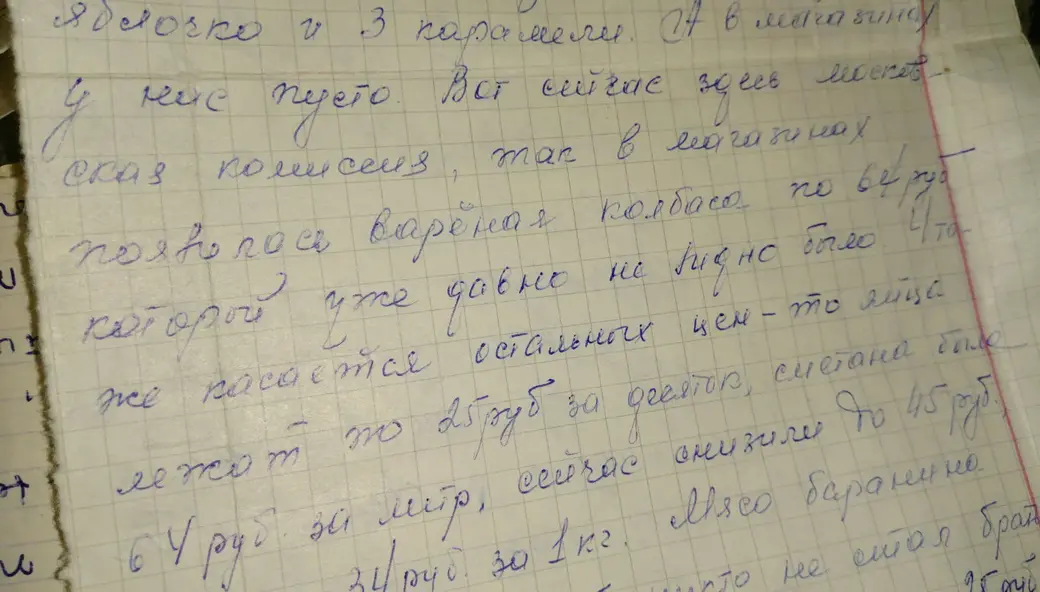 яблочко и 3 карамели. А в магазинах
у нас пусто. Вот сейчас здесь москов-
ская комиссия, так в магазинах
появилась варёная колбаса по 64 руб
которой уже давно не видно было Что
же касается остальных цен - то яйца
лежат по 25 руб за десяток, сметана была
64 руб. за литр, сейчас снизили до 45 руб.,
34 руб. за 1 кг. Мясо баранина
никто не стал брать
25 руб